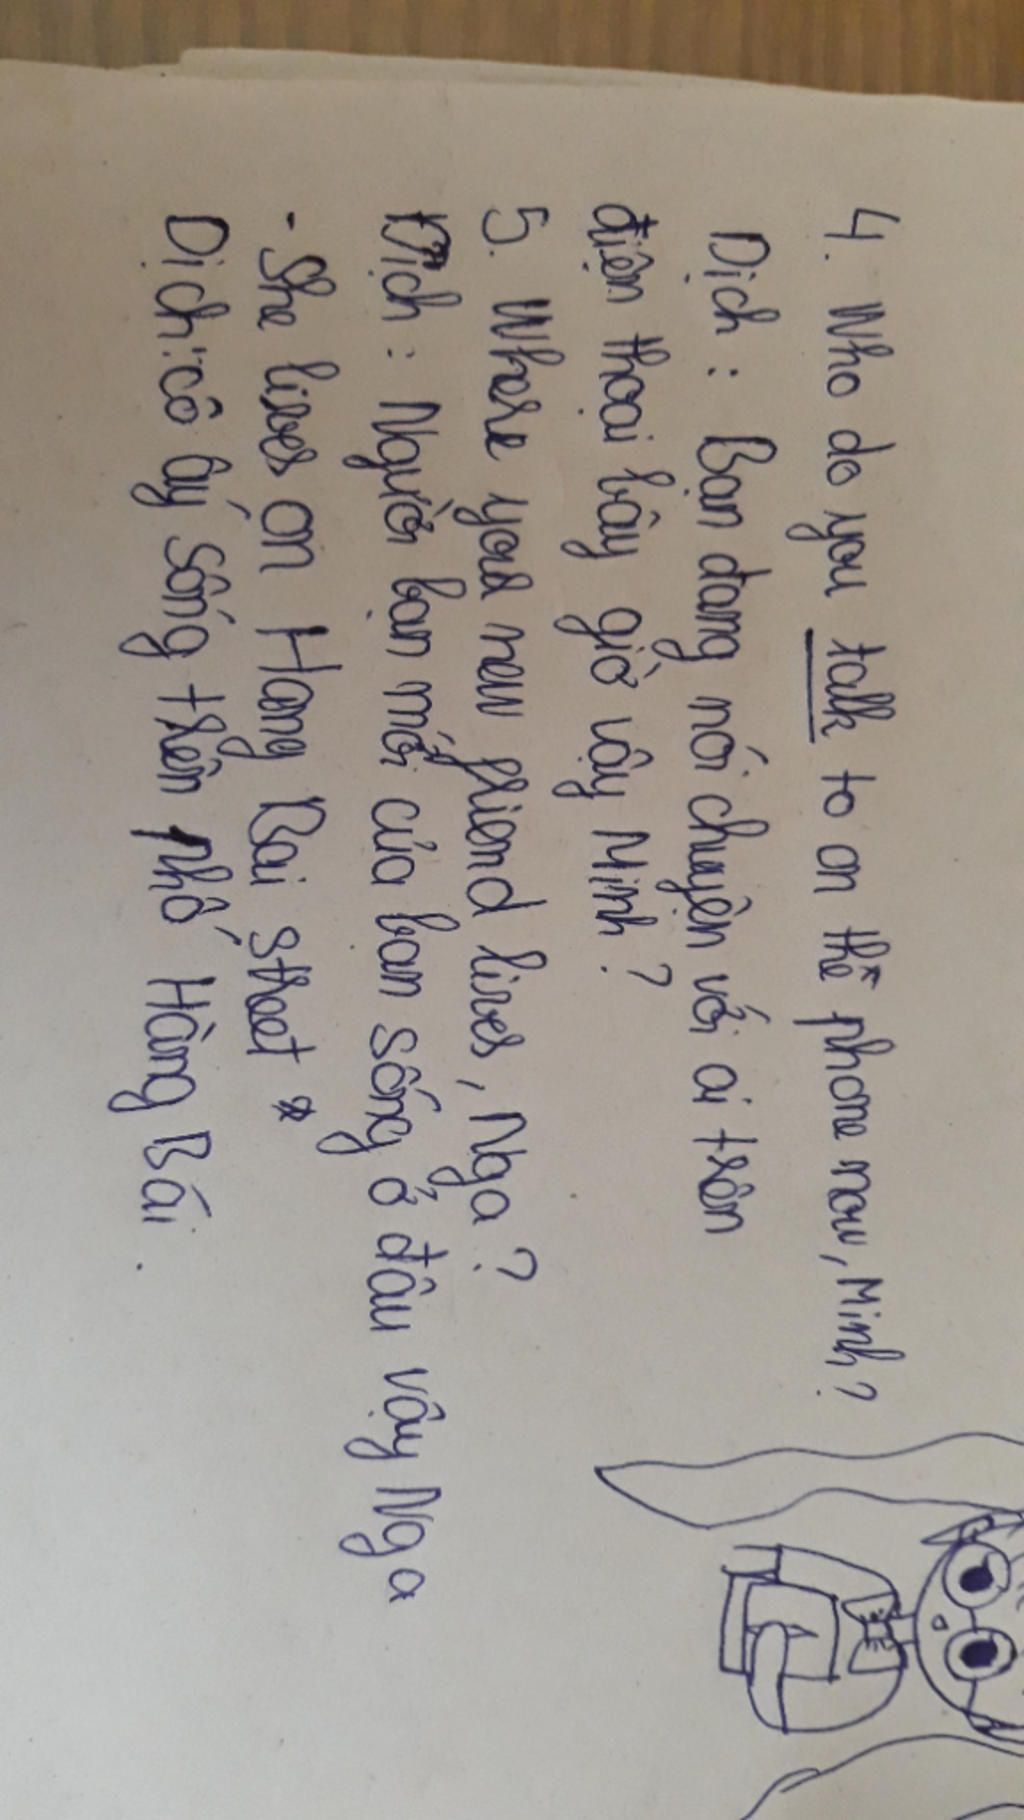 4. Who do you talk to on the phone now, Minh?
Dịch : Bạn đang nói chuyện với ai trên
điện thoại bây giờ vậy Minh?
5. Where your new friend lives, Nga?
Dịch : Người bạn mới của bạn sống ở đâu vậy Nga
- She lives on Hang Bai street *
Dịch: cô ấy sống trên phố Hàng Bái.